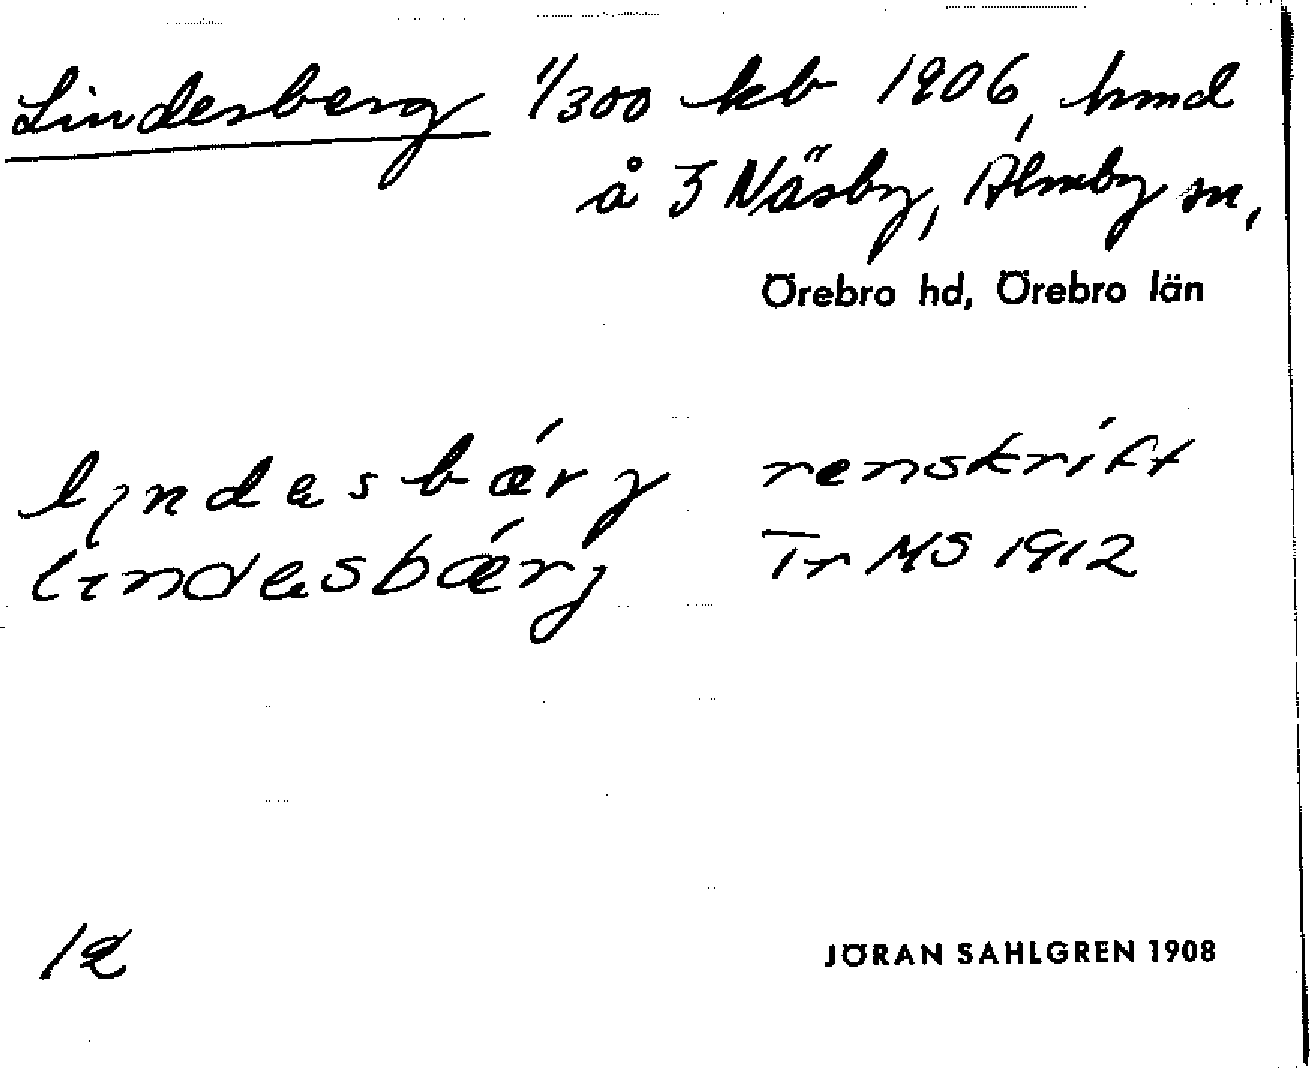 Lindesberg 1/300 kb 1906, hmd
å 3 Näsby, Almby sn,
Örebro hd, Örebro län
lındəsbǽrj renskrift
lındəsbǽrj Tr MS 1912
12
JÖRAN SAHLGREN 1908